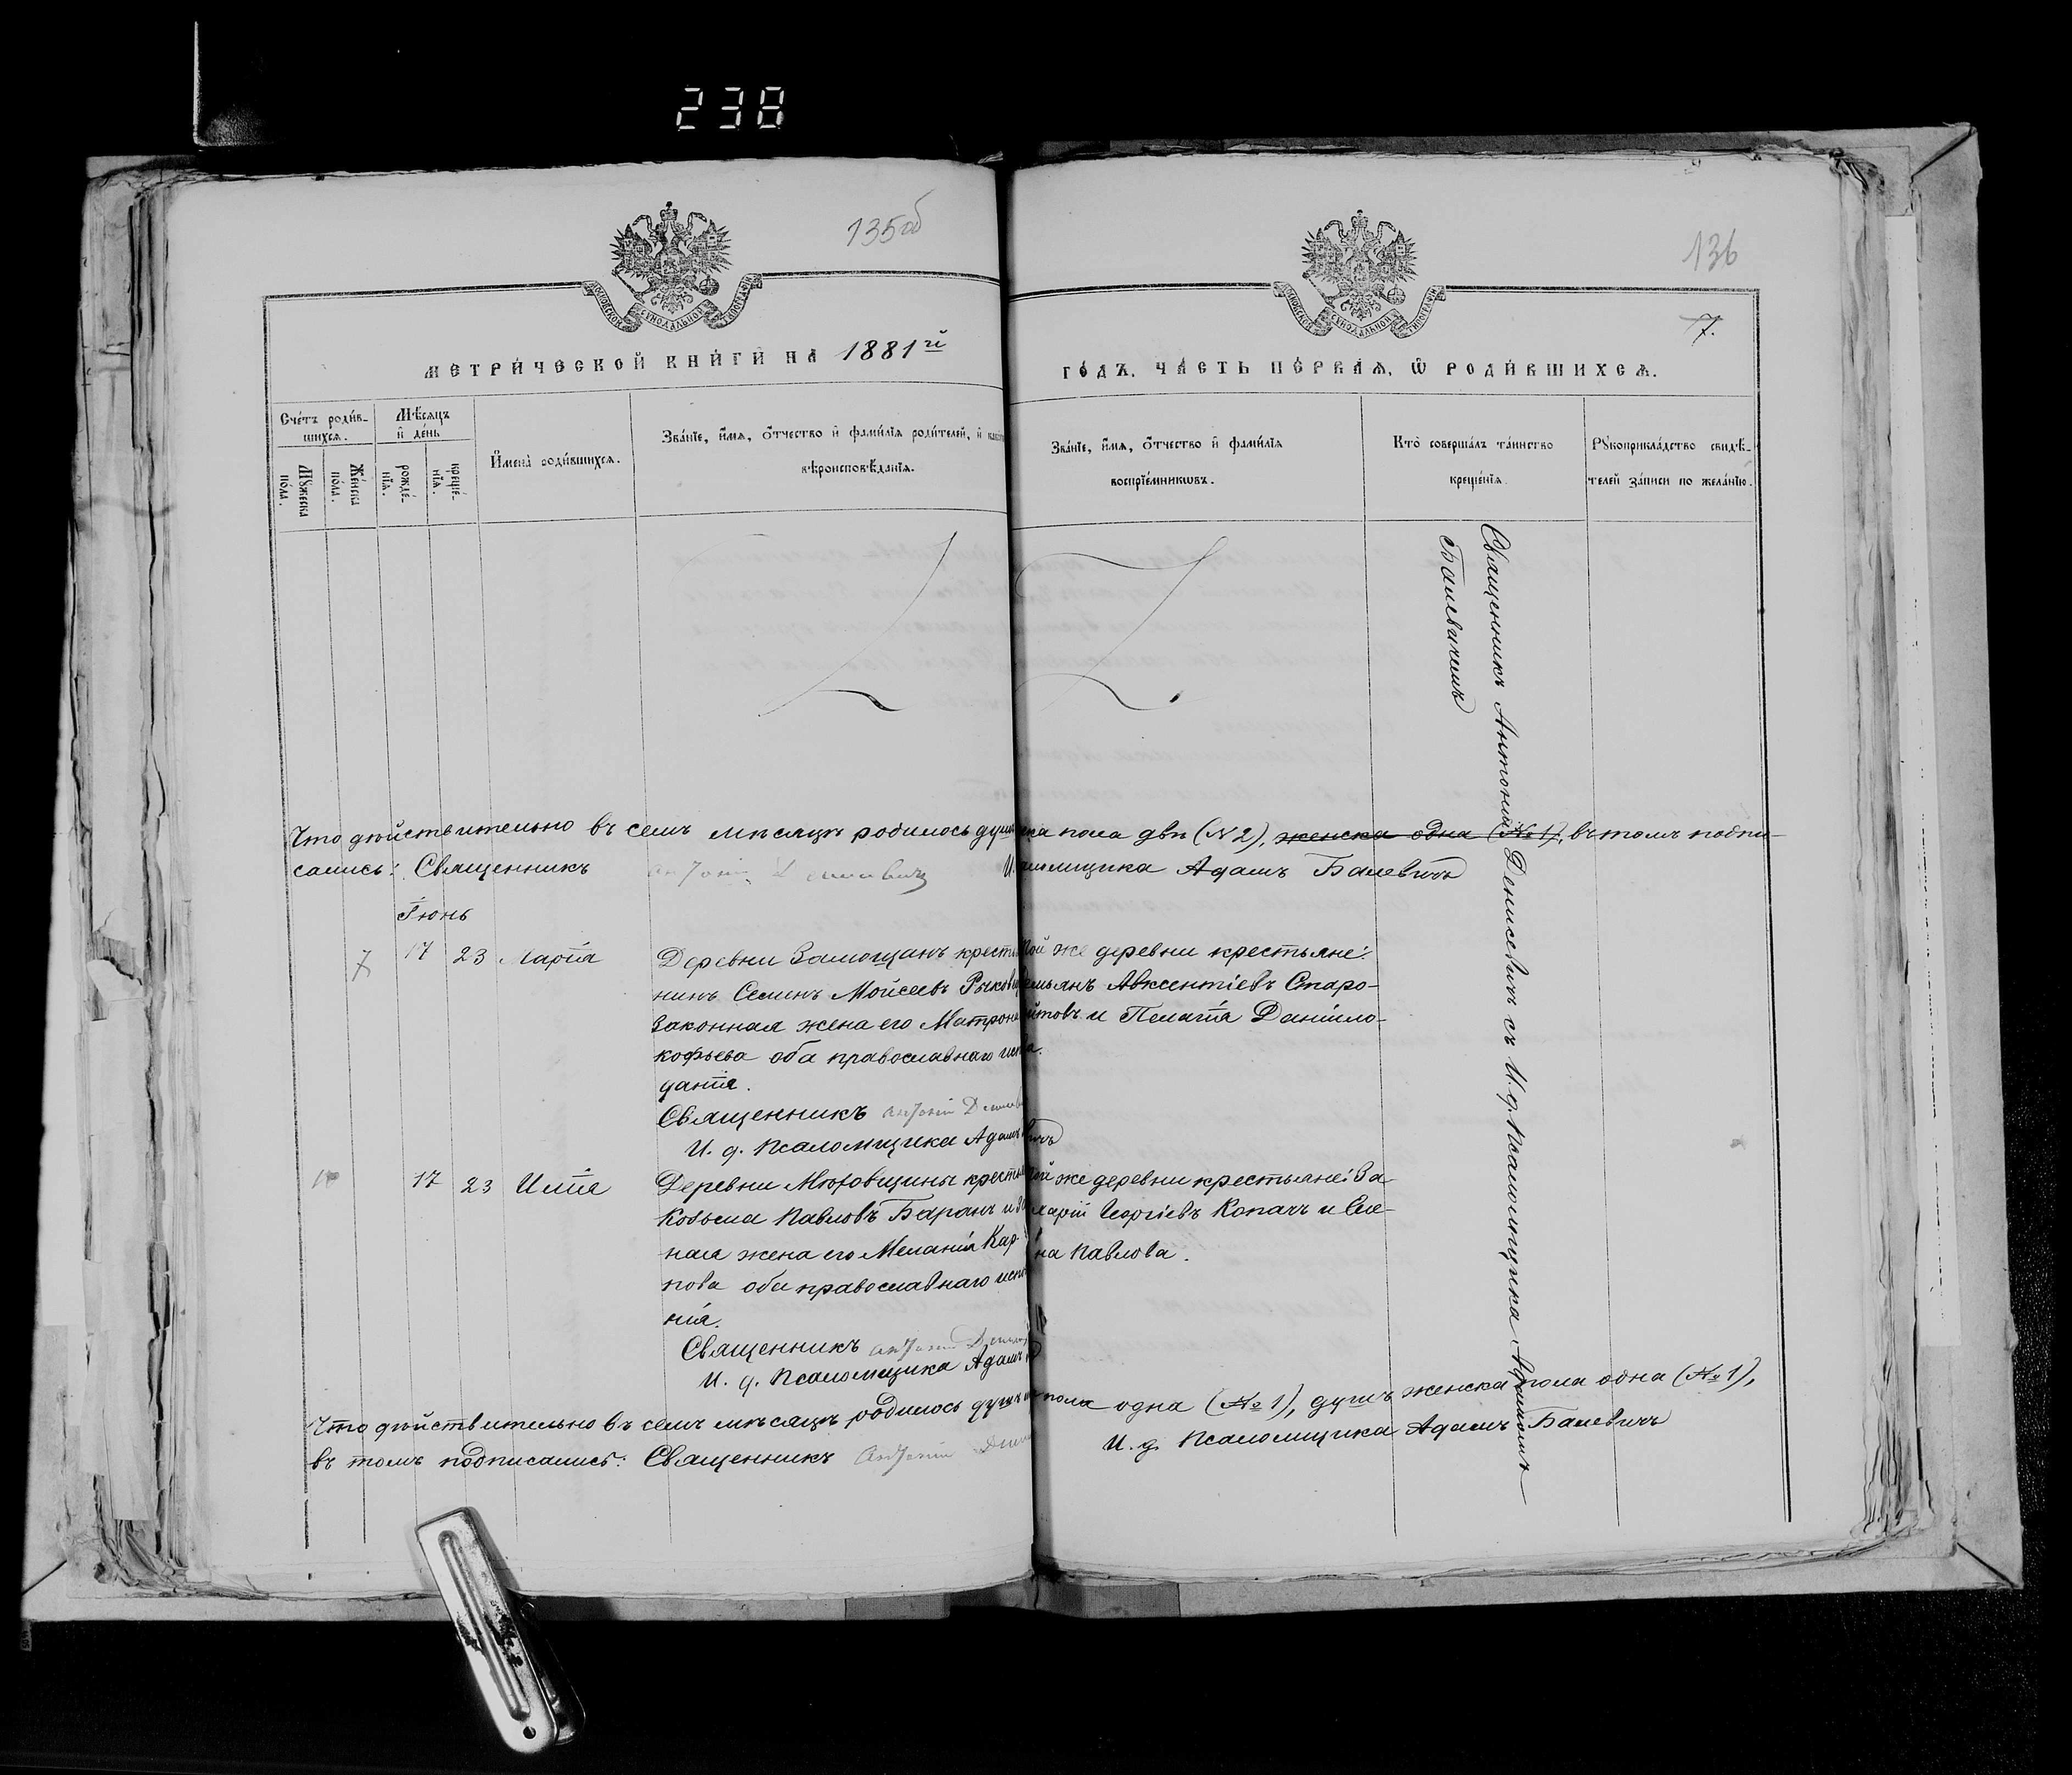 238
135об
136
МОСКОВСКОЙ СѴНОДАЛЬНОЙ ТИПОГРАФІИ
МОСКОВСКОЙ СѴНОДАЛЬНОЙ ТИПОГРАФІИ
7.
МЕТРИ́ЧЕСКОЙ КНИ́ГИ НА 1881й
ГО́ДЪ. ЧА́СТЬ ПЕ́РВАѦ, Ѡ РОДИ́ВШИХСѦ.
Сче́тъ роди́в-
шихсѧ.
Мѣ́сѧцъ
и де́нь
Мꙋ́жеска
по́ла.
Же́нска
по́ла.
рожде́-
нїѧ.
креще́-
нїѧ.
Имена̀ роди́вшихсѧ.
Зва́нїе, и́мѧ, о́тчество и фами́лїѧ роди́телей, и
вѣроисповѣ́данїѧ.
Зва́нїе, и́мѧ, о́тчество и фами́лїѧ
воспрїе́мникѡвъ.
Кто̀ соверша́лъ та́инство
креще́нїѧ.
Рꙋкоприкла́дство свидѣ́-
телей за́писи по жела́нїю.
Священникъ Антоній Денисевичъ съ И. д. Псаломщика Адамомъ
Балевичемъ
Что дѣйствительно въ семъ мѣсяцѣ родилось душъ ска пола двѣ (№ 2), женска одна (№ 1), въ томъ подпи-
сались: Священникъ Антоній Денисевичъ И. аломщика Адамъ Балевичъ
Іюнь
7 17 23 Марія
Деревни Замощанъ крестья
нинъ Семенъ Мойсеевъ Рыков
законная жена его Матрона
кофьева оба православнаго испо
данія.
Священникъ Антоній Денисев
И. д. Псаломщика Адамъ вичъ
той же деревни крестьяне:
емьянъ Авксентіевъ Старо-
йтовъ и Пелагія Данило-
ва.
17 23 Илія
Деревни Мюховщины крестья
Козьма Павловъ Баранъ и за
ная жена его Меланія Кар-
пова оба православнаго испо
нія.
Священникъ Антоній Денис
И. д. Псаломщика Адамъ
той же деревни крестьяне: За
харій Георгіевъ Копачъ и Еле-
на Павлова.
Что дѣйствительно въ семъ мѣсяцѣ родилось душъ пола одна (№ 1), душъ женска пола одна (№ 1),
въ томъ подписались: Священникъ Антоній Денис И. д. Псаломщика Адамъ Балевичъ